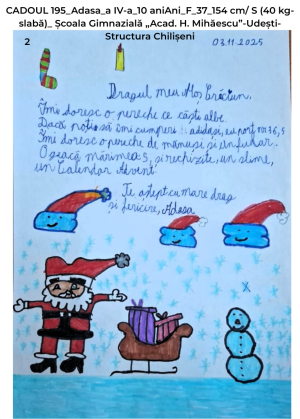 CADOUL 195_Adasa_a IV-a_10 aniAni_F_37_154 cm/ S (40 kg-
slabă)_ Școala Gimnazială „Acad. H. Mihăescu”-Udești-
Structura Chilișeni
2
03.11.2025
Dragul meu Moș Crăciun.
Îmi doresc o pereche de căști albe.
Dacă poți să îmi cumperi și adidași, eu port nr 36,5
Îmi doresc o pereche de mănuși și un fular.
O geacă mărimea S, și rechizite, un slime,
un Calendar Advent.
Te aștept cu mare drag
și fericire, Adasa